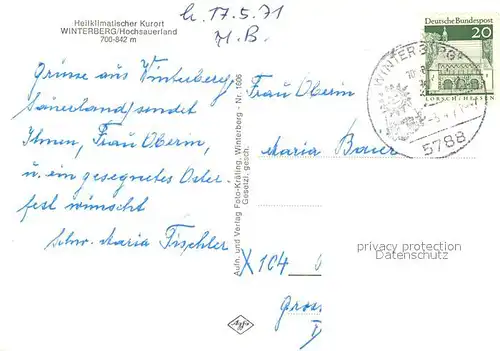 Heilklimatischer Kurort
WINTERBERG/Hochsauerland
700-842 m
b. 17.5.71
M.B.
Deutsche Bundespost
20
LORSCH/HESSEN
WINTERBERG
5788
Grüsse aus Winterberg/
Sauerland sendet
Ihnen, Frau Oberin,
u. ein gesegnetes Oster-
fest wünscht
Schw. Maria Tischler
Aufn. und Verlag Foto-Kräling, Winterberg - Nr. 1606
Gesetzl. gesch.
Agfa
Frau Oberin
Maria Bauer
X 104
Gross
privacy protection
Datenschutz